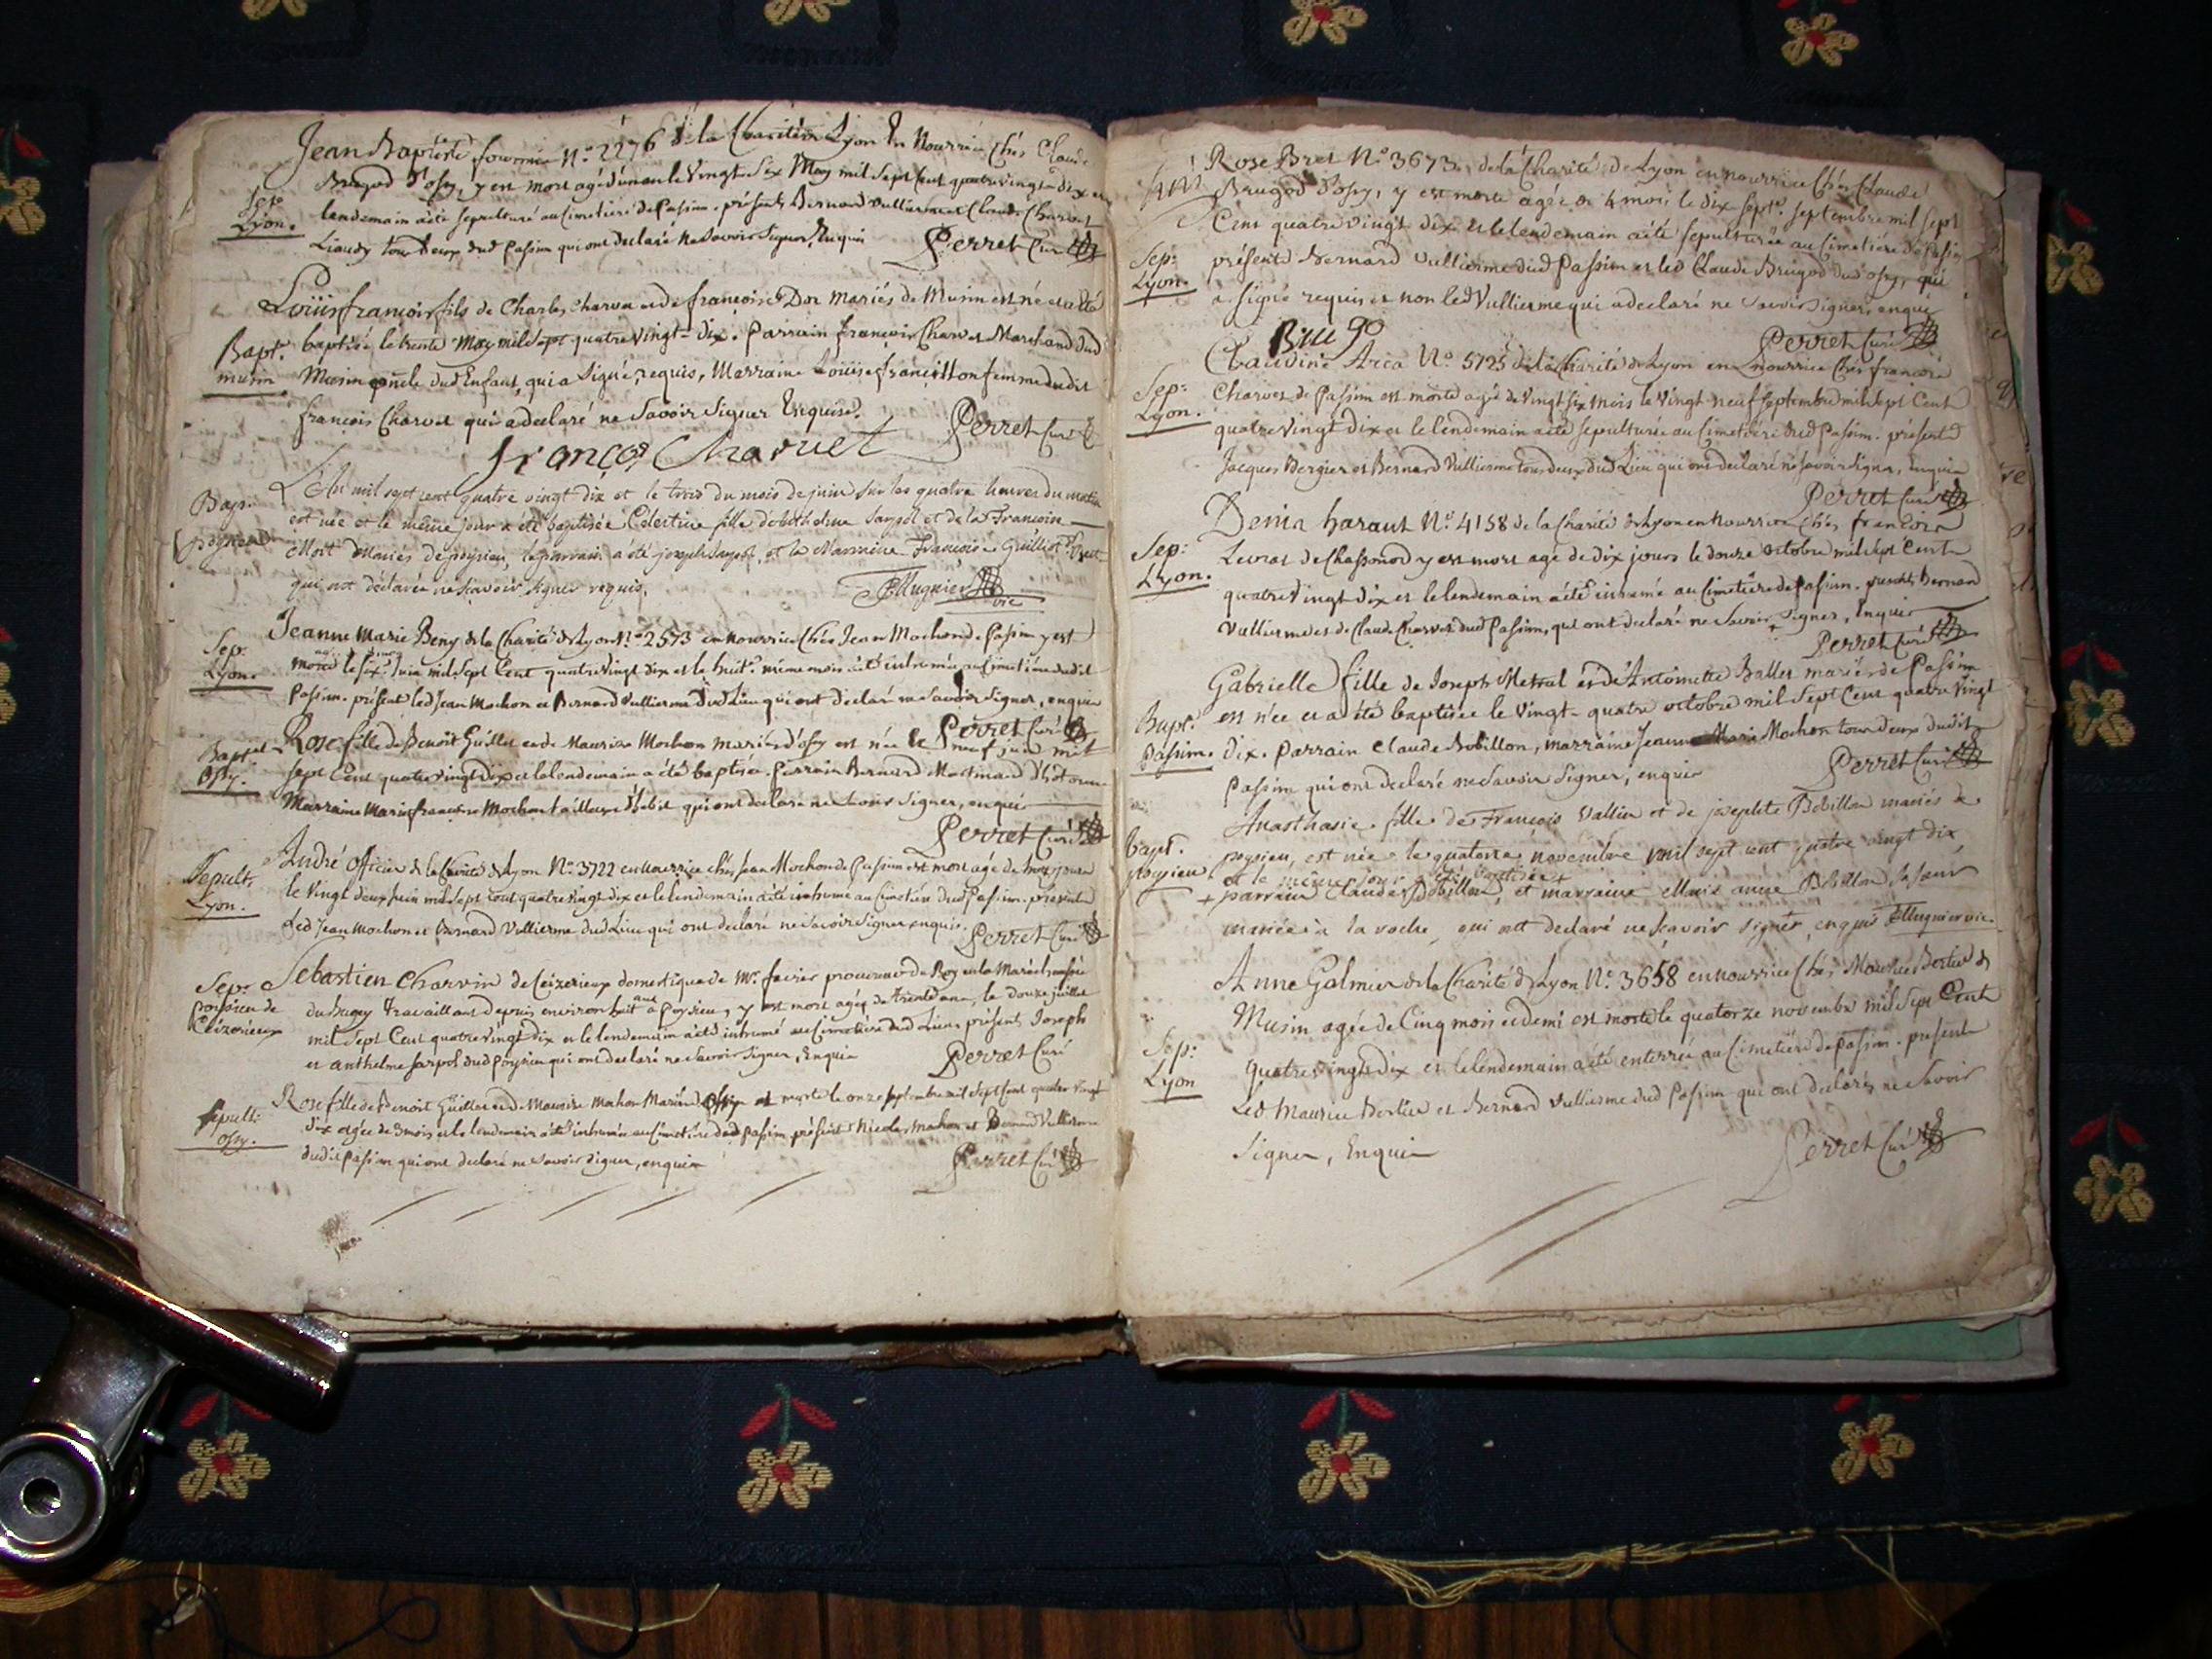 Jean Baptiste fournier N.º 2276 de la Charité de Lyon En Nourrice Chés Claude
Brugod d'ossy, y est mort agé d'un an le Vingt Six May mil Sept Cent quatre vingt-dix et
Sep.
Lyon.
lendemain a été sepulturé au Cimetiere de Passin. présents Bernard Vullierme et Claude Charvet
Liaudy tous deux dud Passin qui ont declaré ne Savoir Signer, Enquis
Perret Curé
Loüis françois fils de Charles Charvet et de françoise Dor mariés de Musin est né et a été
Bapt.
musin
baptisé le trente May mil Sept quatre Vingt-Dix. Parrain François Charvet Marchand dud
Musin oncle dud Enfant, qui a Signé, requis, Marraine Loüise francillon femme dudit
françois Charvet qui a declaré ne Savoir Signer Enquise.
Perret Curé
franços Charuet
L'An mil sept cent quatre vingt dix et le trois du mois de juin sur les quatre heures du matin
Bapt.
poysieu
est née et le même jour a été baptisée Celestine fille d'Anthelme Sarpol et de la Françoise
Mort Mariés de poysieu, le parrain a été joseph Sarpol, et la Marraine Françoise Guilliot
qui ont déclarés ne Scavoir signer requis.
Mugnier vic
Jeanne Marie Beny de la Charité de Lyon N.º 2573 en nourrice Chés Jean Mochon de Passin y est
Sep.
Lyon.
morte le six.e Juin mil Sept Cent quatre Vingt Dix et le huit.e même mois a été inhumée au Cimetiere dudit
Passin. présent led Jean Mochon et Bernard Vullierme dud Lieu qui ont declaré ne Savoir Signer, enquis
Perret Curé
Rose fille de Benoît Guillot et de Maurise Mochon mariés d'ossy est née le neuf juin mil
Bapt.
ossy.
Sept Cent quatre vingt Dix et le lendemain a été baptisée. Parrain Bernard Martinand d'hotonne
Marraine Marie françoise Mochon tailleuse d'habit qui ont declaré ne Savoir Signer, enquis
Perret Curé
André officier de la Charité de Lyon N.º 3722 en Nourrice chés Jean Mochon de Passin est mort agé de jours
Sepult.
Lyon.
le Vingt deux Juin mil Sept Cent quatre vingt dix et le lendemain a été inhumé au Cimetiere dud Passin. présents
Led Jean Mochon et Bernard Vullierme dud Lieu qui ont declaré ne Savoir Signer enquis.
Perret Curé
Sebastien Charvin de Ceizerieux domestique de Mr. fevrier procureur du Roy en la Maréchaussée
Sep.
poysieu de
Ceizerieux
du Bugey travaillant depuis environ huit ans à Poysieu, y est mort agé de trente ans, le douze juillet
mil Sept Cent quatre vingt dix et le lendemain a été inhumé au Cimetiere dud Lieu. présents Joseph
et anthelme Sarpol dud Poysieu qui ont declaré ne Savoir Signer, Enquis
Perret Curé
Rose fille de Benoit Guillot et de Maurise Mochon Mariés d'Ossy est morte le onze septembre mil Sept Cent quatre Vingt
Sepult.
ossy.
dix agée de 3 mois et le lendemain a été inhumée au Cimetiere dud Passin présents Nicolas Mochon et Bernard Vullierme
dudit Passin qui ont declaré ne Savoir Signer, enquis
Perret Curé
Rose Bret N.º 3673. de la Charité de Lyon en nourrice Chés Claude
Brugod d'ossy, y est morte agée de 4 mois le dix sept.e septembre mil sept
Cent quatre vingt dix et le lendemain a été sepulturée au Cimetiére de Passin
Sep.
Lyon.
présents Bernard Vullierme dud Passin et led Claude Brugod dud ossy, qui
a signé requis et non led Vullierme qui a declaré ne Savoir Signer, enquis
Perret Curé
Claudine Aria N.º 5725 de la Charité de Lyon en nourrice Chés françois
Sep.
Lyon.
Charvet de Passin est morte agée de Vingt six mois le Vingt neuf Septembre mil Sept Cent
quatre Vingt Dix et le lendemain a été sepulturée au Cimetiére dud Passin. présents
Jacques Bergier et Bernard Vullierme tous deux dud Lieu qui ont declaré ne Savoir Signer, enquis
Perret Curé
Denis haraut N.º 4158 de la Charité de Lyon en nourrice chés françois
Sep.
Lyon.
Levrat de Chassonod y est mort agé de Dix jours le douze octobre mil Sept Cent
quatre Vingt Dix et le lendemain a été inhumé au Cimetière de Passin. présents Bernard
Vullierme et Claude Charvet dud Passin, qui ont declaré ne Savoir Signer, Enquis
Perret Curé
Gabrielle fille de Joseph Metral et d'Antoinette Ballet mariés de Passin
Bapt.
Passin.
est née et a été baptisée le Vingt-quatre octobre mil Sept Cent quatre Vingt
Dix. Parrain Claude Bobillon, marraine Jeanne Marie Mochon tous deux dudit
Passin qui ont declaré ne Savoir Signer, enquis
Perret Curé
Anasthasie fille de François Vallin et de josephte Bobillon mariés de
bapt.
poysieu
poysieu, est née le quatorze novembre mil sept cent quatre vingt dix,
et le même jour a été baptisée +
+ parrain Claude Bobillon, et marraine Marie anne Bobillon sa sœur
mariée à la roche, qui ont declaré ne scavoir signer, enquis Mugnier vic.
Anne Galmier de la Charité de Lyon N.º 3658 en nourrice Chés Maurice Bertier de
Musin agée de Cinq mois et demi est morte le quatorze novembre mil Sept Cent
Sep.
Lyon
quatre vingt Dix et le lendemain a été enterrée au Cimetiére de Passin. présents
Led Maurice Bertier et Bernard Vullierme dud Passin qui ont declarés ne Savoir
Signer, Enquis
Perret Curé